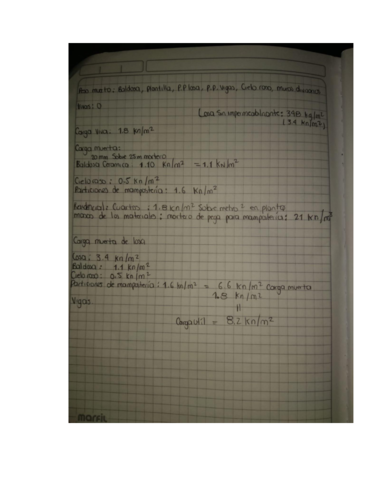 Peso muerto: Baldosa, plantilla, P.P losa, P.P. Vigas, Cielo raso, muros divisorios
Losa Sin impermeabilizante: 340 kg/m²
(3.4 kn/m²)
Carga viva: 1.8 kn/m²
Carga muerta:
Sobre mortero
Baldosa Ceramica: 1.10 Kn/m² = 1.1 kN/m²
Cielo raso: 0.5 Kn/m²
Particiones de mamposteria: 1.6 Kn/m²
Residencial: Cuartos: 1.8 kn/m² Sobre metro² en planta
masas de los materiales: mortero de pega para mamposteria: 21 kn/m³
Carga muerta de losa
Losa: 3.4 kn/m²
Baldosa: 1.1 Kn/m²
Cielo raso: 0.5 Kn/m²
Particiones de mamposteria: 1.6 kn/m² = 6.6 Kn/m² Carga muerta
1.8 Kn/m²
Vigas
Carga util = 8.2 Kn/m²